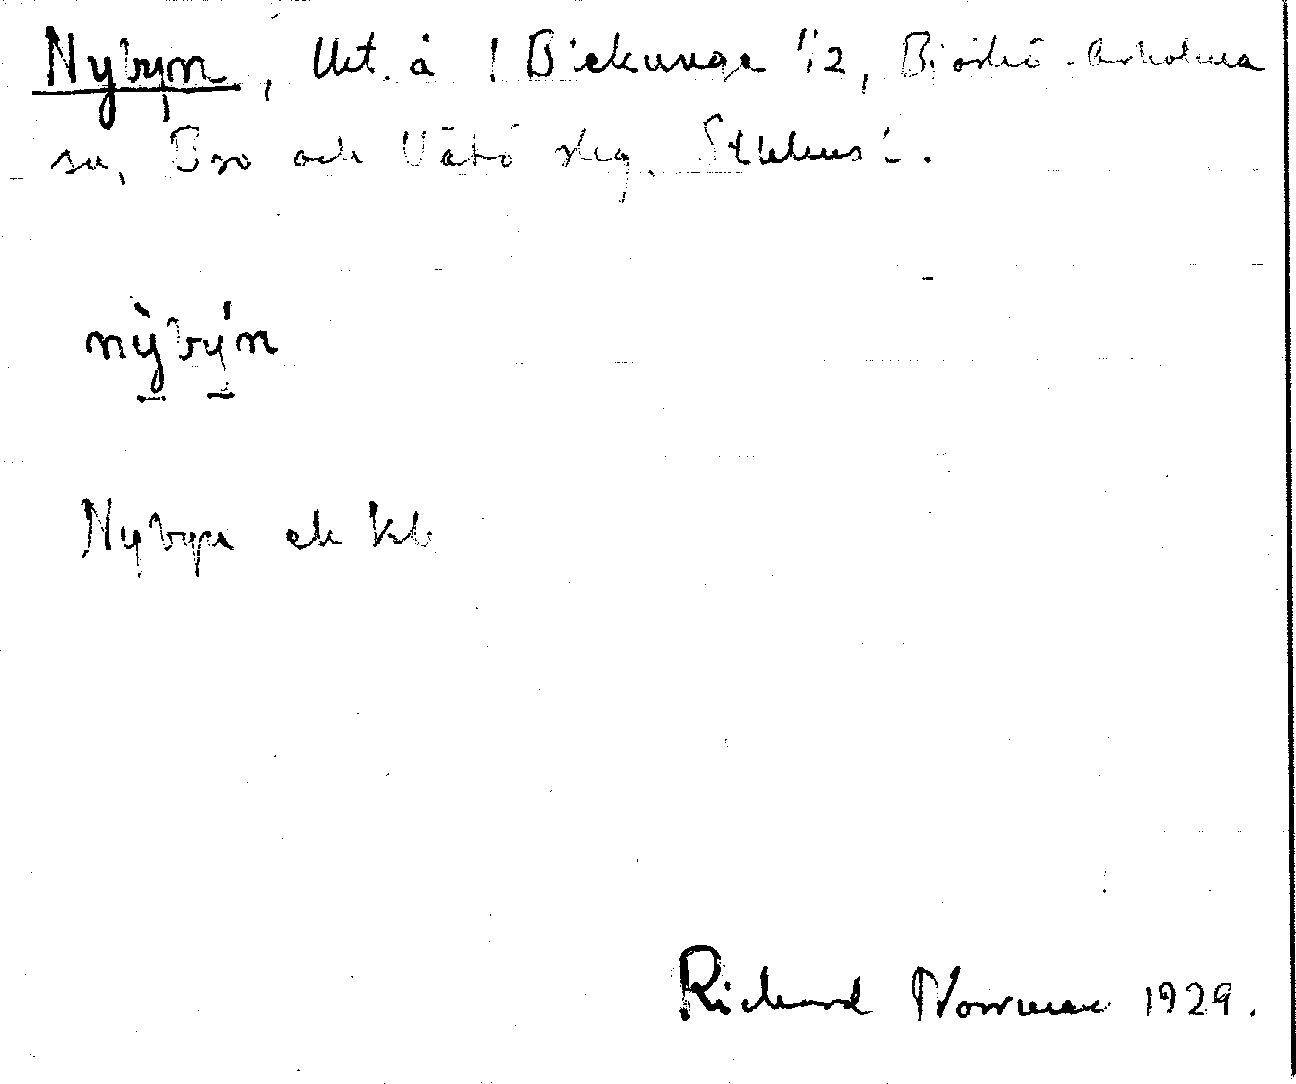 Nybyn, Utt. å 1 Bickunge 1/2, Björkö-Arholma
sn, Bro och Vätö skg. Sthlms l.
nỳbýn
Nybyn ek kb
Richard Norrman 1929.